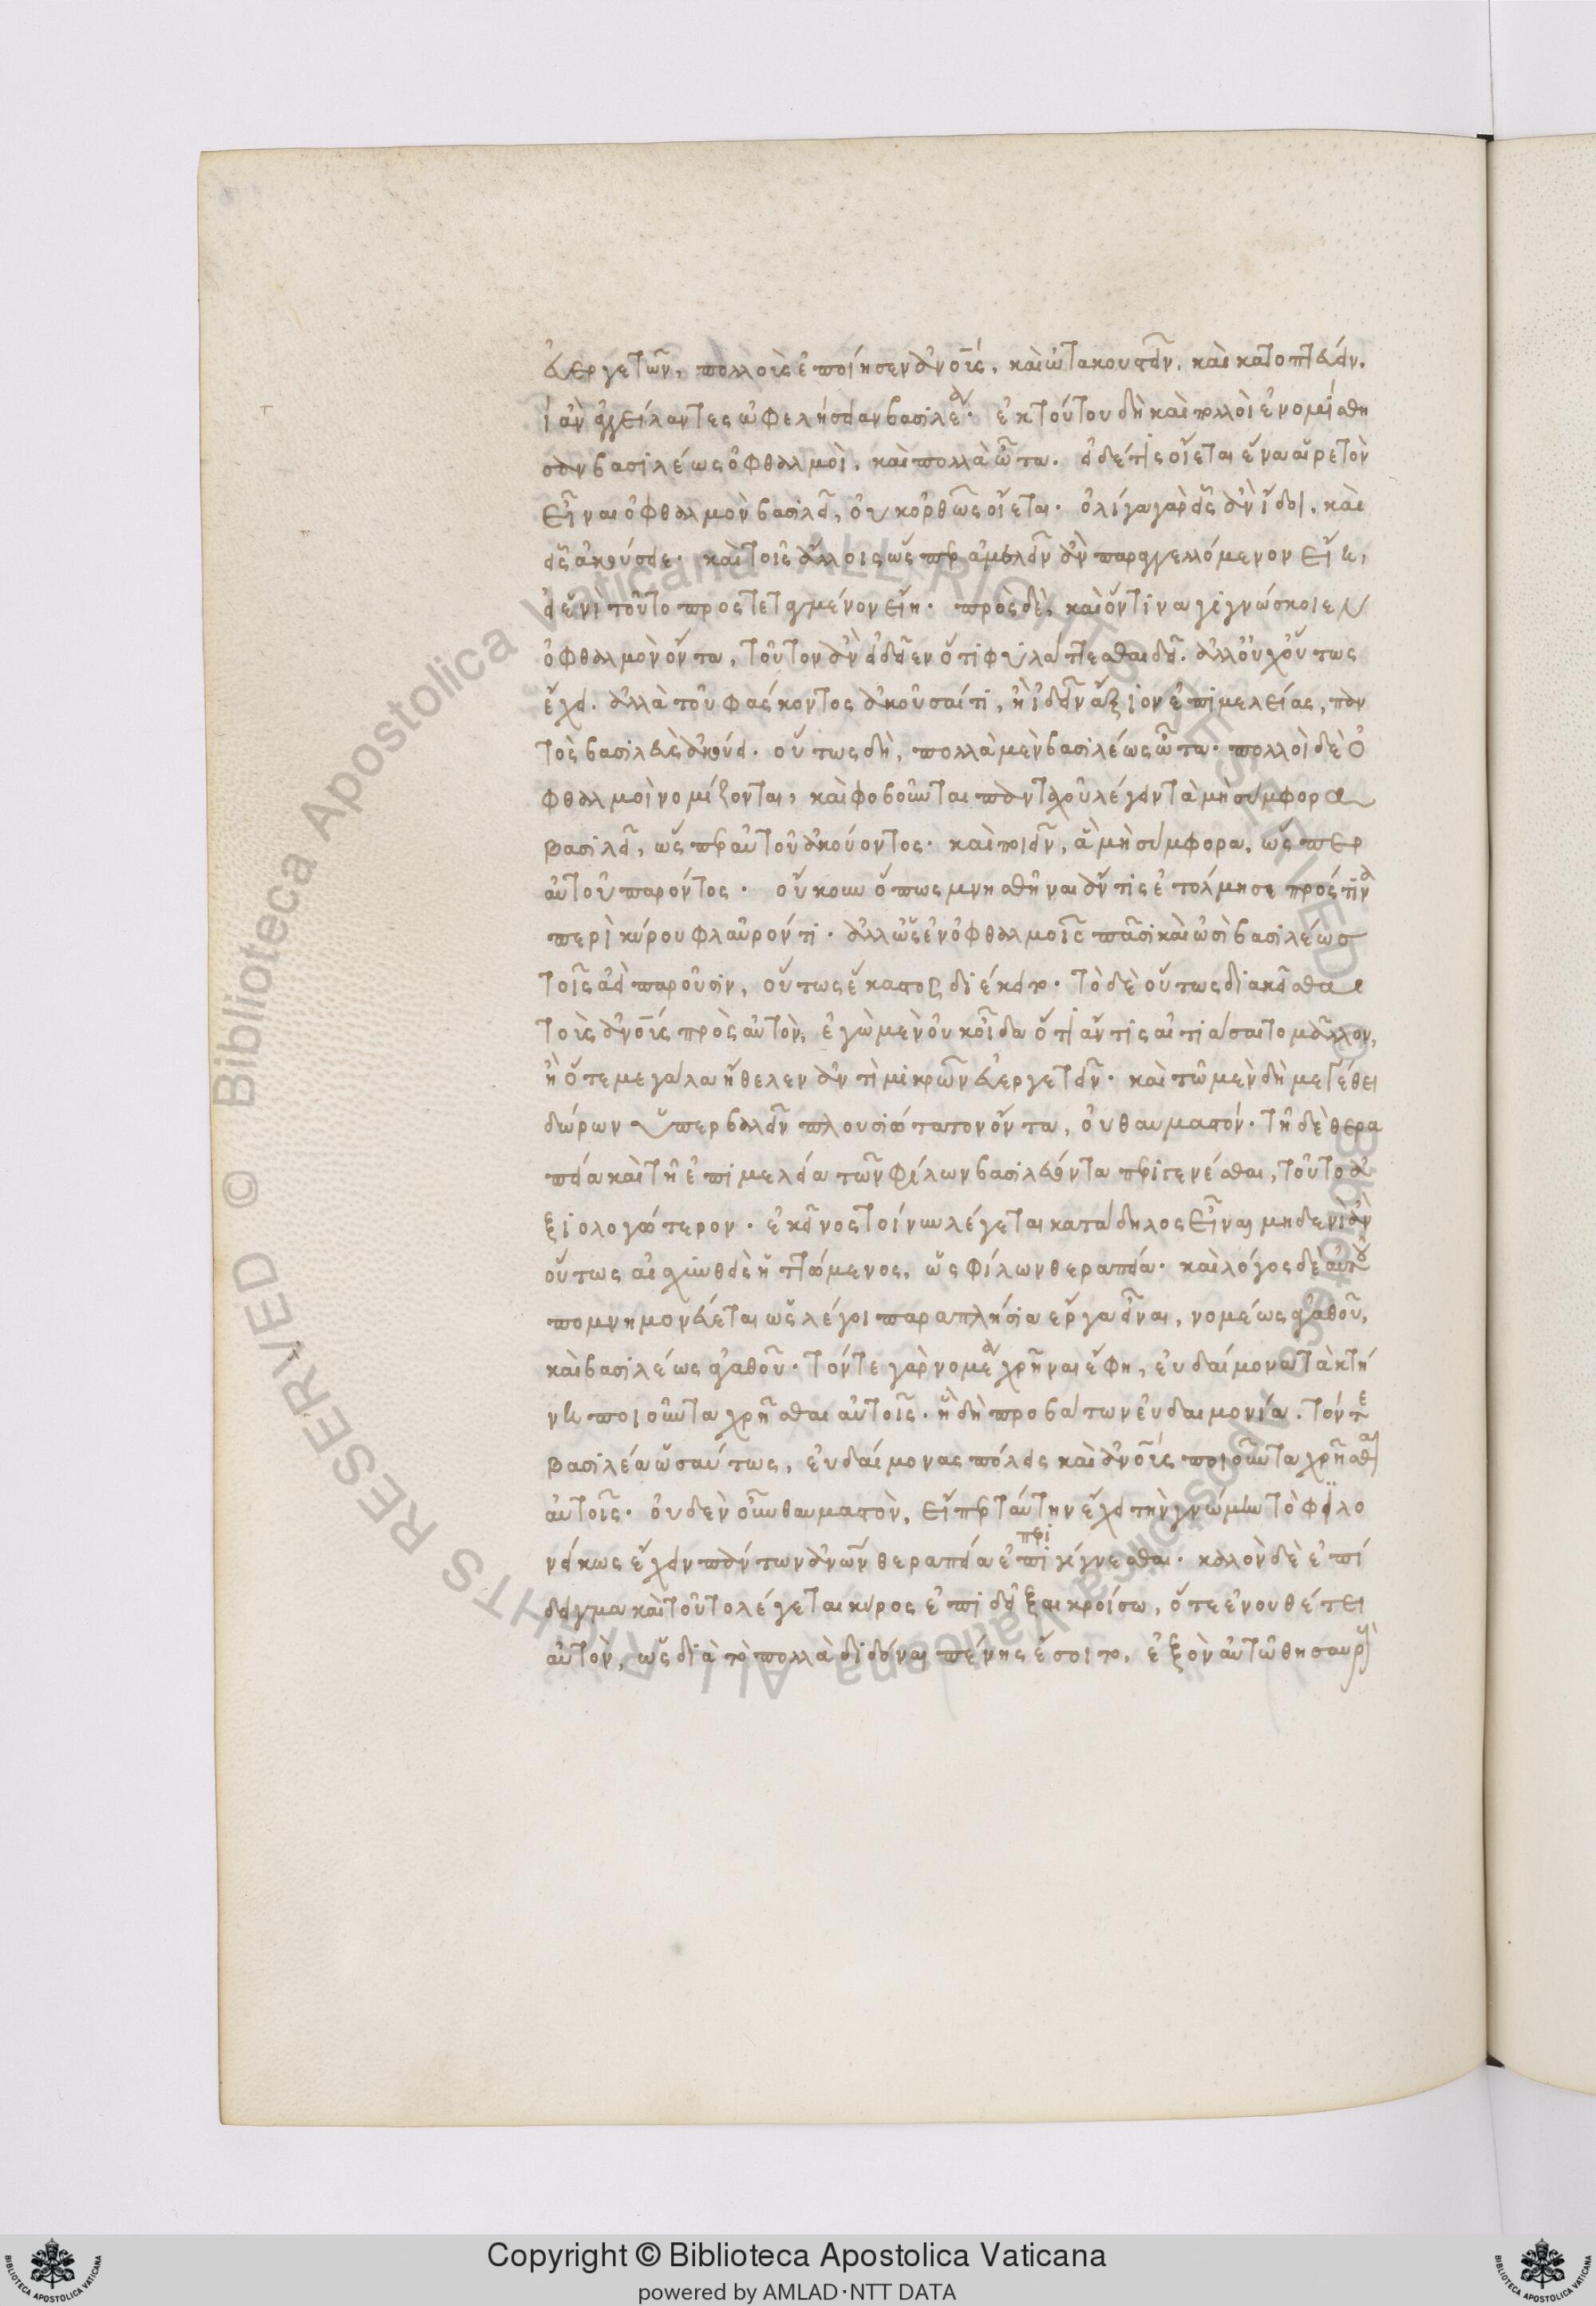 εὐεργετῶν, πολλοὺς ἐποίησεν ἀνοῖς, καὶ ὠτακουστεῖν, καὶ κατοπτεύειν.
τί ἂν ἀγγείλαντες ὠφελήσειαν βασιλέα· ἐκ τούτου δὴ καὶ πολλοὶ ἐνομίσθη
σαν βασιλέως ὀφθαλμοὶ, καὶ πολλὰ ὦτα. εἰ δέ τις οἴεται ἕνα αἱρετὸν
εἶναι ὀφθαλμὸν βασιλεῖ, οὐκ ὀρθῶς οἴεται· ὀλίγα γὰρ εἷς ἂν ἴδοι, καὶ
εἷς ἀκούσειε· καὶ τοῖς ἄλλοις ὥσπερ ἀμελεῖν ἂν παρηγγελμένον εἴη,
εἰ ἑνὶ τοῦτο προστεταγμένον εἴη· πρὸς δὲ, καὶ ὅντινα γιγνώσκοιεν
ὀφθαλμὸν ὄντα, τοῦτον ἂν εἰδεῖεν ὅτι φυλάττεσθαι δεῖ. ἀλλ' οὐχ οὕτως
ἔχει. ἀλλὰ τοῦ φάσκοντος ἀκοῦσαί τι, ἢ ἰδεῖν ἄξιον ἐπιμελείας, παν
τὸς βασιλεὺς ἀκούει. οὕτως δὴ, πολλὰ μὲν βασιλέως ὦτα· πολλοὶ δὲ ὀ
φθαλμοὶ νομίζονται, καὶ φοβοῦνται πανταχοῦ λέγειν τὰ μὴ σύμφορα
βασιλεῖ, ὥσπερ αὐτοῦ ἀκούοντος· καὶ ποιεῖν, ἃ μὴ σύμφορα, ὥσπερ
αὐτοῦ παρόντος· οὔκουν ὅπως μνησθῆναι ἄν τις ἐτόλμησε πρός τινα
περὶ κύρου φλαῦρόν τι· ἀλλ' ὡς ἐν ὀφθαλμοῖς πᾶσι καὶ ὠσὶ βασιλέως
τοῖς ἀεὶ παροῦσιν, οὕτως ἕκαστος διέκειτο· τὸ δὲ οὕτως διακεῖσθαι
τοὺς ἀνοῖς πρὸς αὐτὸν, ἐγὼ μὲν οὐκ οἶδα ὅ τι ἄν τις αἰτιάσαιτο μᾶλλον,
ἢ ὅτε μεγάλα ἤθελεν ἀντὶ μικρῶν εὐεργετεῖν· καὶ τῷ μὲν δὴ μεγέθει
δώρων ὑπερβαλεῖν πλουσιώτατον ὄντα, οὐ θαυμαστόν· τῇ δὲ θερα
πεία καὶ τῇ ἐπιμελεία τῶν φίλων βασιλεύοντα περιγενέσθαι, τοῦτο ἀ
ξιολογώτερον· ἐκεῖνος τοίνυν λέγεται κατάδηλος εἶναι μηδενὶ ἂν
οὕτως αἰσχυνθεὶς ἡττώμενος, ὡς φίλων θεραπεία· καὶ λόγος δὲ αὐτοῦ
πομνημονεύεται ὡς λέγοι παραπλήσια ἔργα εἶναι, νομέως ἀγαθοῦ,
καὶ βασιλέως ἀγαθοῦ· τόν τε γὰρ νομέα χρῆναι ἔφη, εὐδαίμονα τὰ κτή
νη ποιοῦντα χρῆσθαι αὐτοῖς· ἣ δὴ προβάτων εὐδαιμονία. τόν τε
βασιλέα ὡσαύτως, εὐδαίμονας πόλεις καὶ ἀνοῖς ποιοῦντα χρῆσθαι
αὐτοῖς· οὐδὲν οὖν θαυμαστὸν, εἴπερ ταύτην εἶχε τὴν γνώμην τὸ φιλο
νείκως ἔχειν πάντων ἀνῶν θεραπεία ἐπι περι γίγνεσθαι· καλὸν δὲ ἐπί
δειγμα καὶ τοῦτο λέγεται κῦρος ἐπιδεῖξαι κροίσω, ὅτε ἐνουθέτει
αὐτὸν, ὡς διὰ τὸ πολλὰ διδόναι πένης ἔσοιτο, ἐξὸν αὐτῷ θησαυροὺς
Copyright © Biblioteca Apostolica Vaticana
powered by AMLAD·NTT DATA